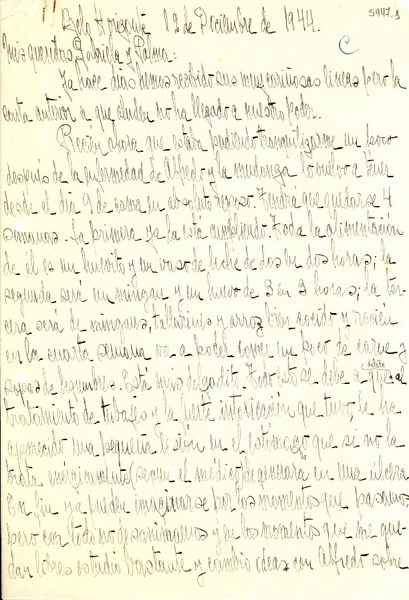 5947.3
Belo Horizonte 12 de Diciembre de 1944.
C
Mis queridas Gabriela y Palma:
Ya hace días hemos recibido sus muy cariñosas líneas pero la
carta anterior a que aluden no ha llegado a nuestro poder.
Recién ahora que estaba pudiendo tranquilizarme un poco
después de la enfermedad de Alfredo y la mudanza lo vuelvo a tener
desde el día 9 de cama en absoluto reposo. Tendrá que guardarse 4
semanas. La primera ya la está cumpliendo. Toda la alimentación
de él es un huevito y un vaso de leche de dos en dos horas; la
segunda será un mingau y un huevo de 3 en 3 horas; la ter-
cera será de mingaus, tallarines y arroz bien cocido y recién
en la cuarta semana va a poder comer un poco de carne y
sopas de legumbres. Está más delgadito. Todo esto se debe a que
tratamiento de trabajos y la fuerte intoxicación que tuvo, le ha
aparecido una pequeña lesión en el estómago que si no la
trata enérgicamente (según el médico) degenerará en una úlcera.
En fin ya pueden imaginarse por los momentos que pasamos,
pero con todo no desanimamos y en los momentos que me que-
dan libres estudio bastante y cambio ideas con Alfredo sobre